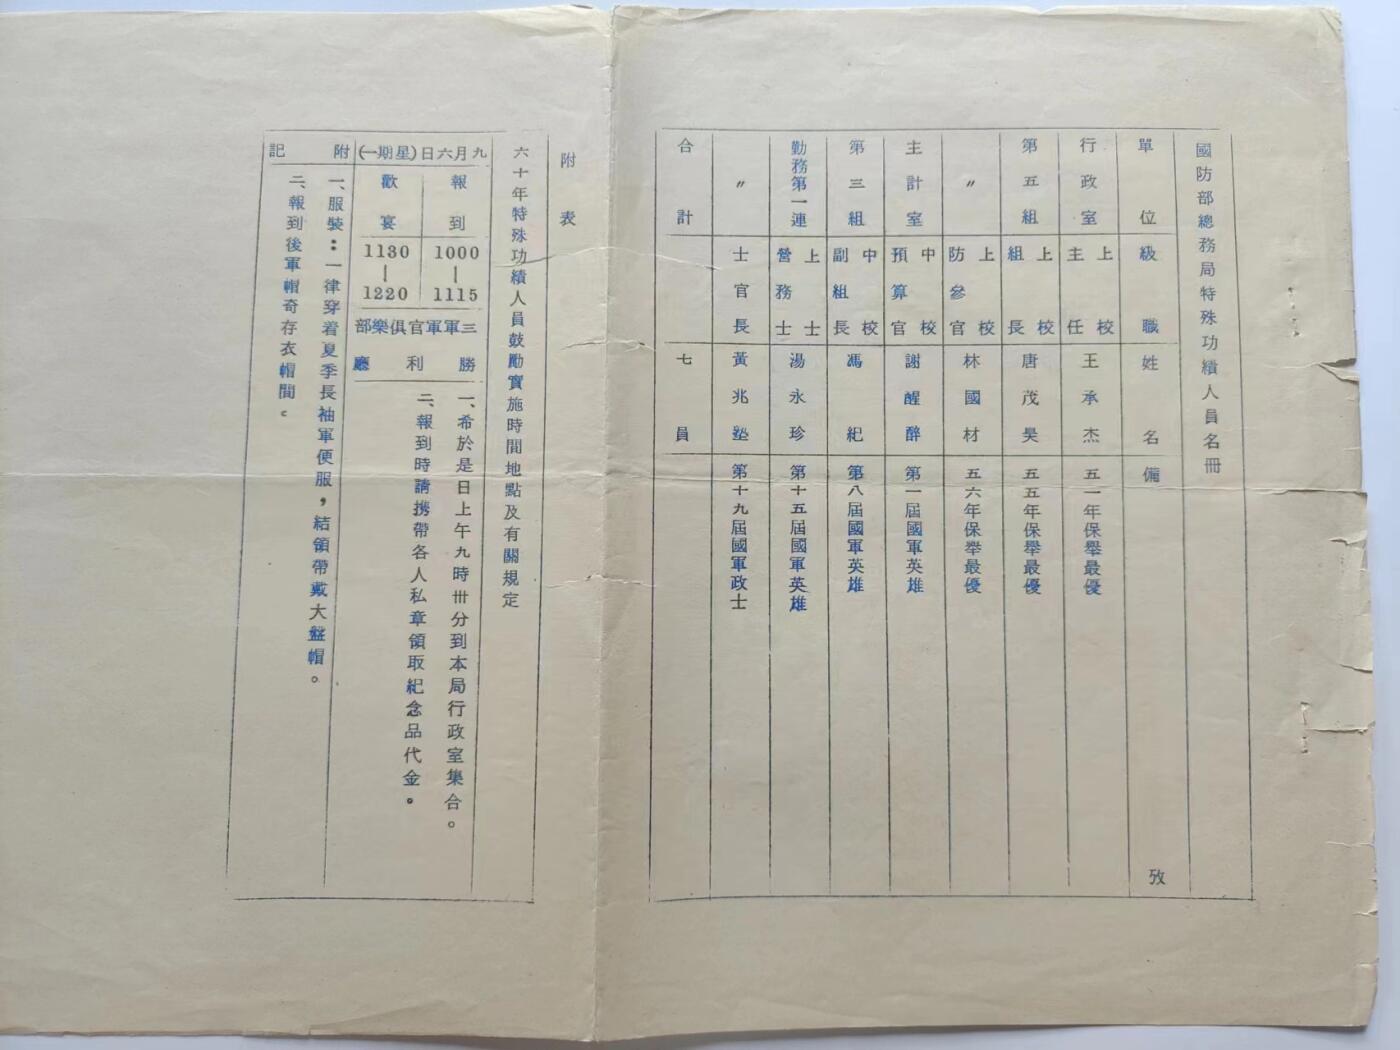 國防部總務局特殊功績人員名冊
單位 級職 姓名 備攷
行政室 上校主任 王承杰 五一年保舉最優
第五組 上校組長 唐茂昊 五五年保舉最優
〃 上校防參官 林國材 五六年保舉最優
主計室 中校預算官 謝醒醉 第一屆國軍英雄
第三組 中校副組長 馮紀 第八屆國軍英雄
勤務第一連 上士營務士 湯永珍 第十五屆國軍英雄
〃 士官長 黃兆塾 第十九屆國軍政士
合計 七員
附表
六十年特殊功績人員鼓勵實施時間地點及有關規定
九月六日(星期一)
報到 1000-1115
歡宴 1130-1220
三軍軍官俱樂部
勝利廳
一、希於是日上午九時卅分到本局行政室集合。
二、報到時請携帶各人私章領取紀念品代金。
附記
一、服裝：一律穿着夏季長袖軍便服，結領帶戴大盤帽。
二、報到後軍帽奇存衣帽間。